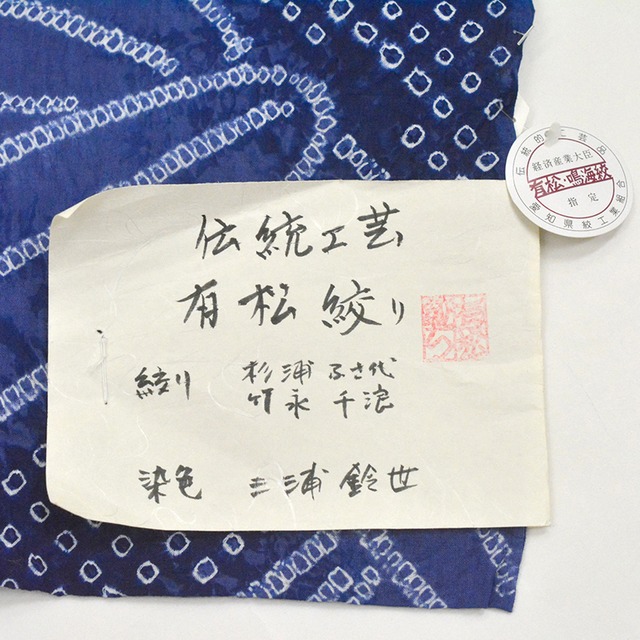 伝統工芸
有松絞り
絞り 杉浦 ふさ代
竹永 千浪
染色 三浦 鈴世
伝統的工芸品
経済産業大臣
有松・鳴海絞
指定
愛知県絞工業組合